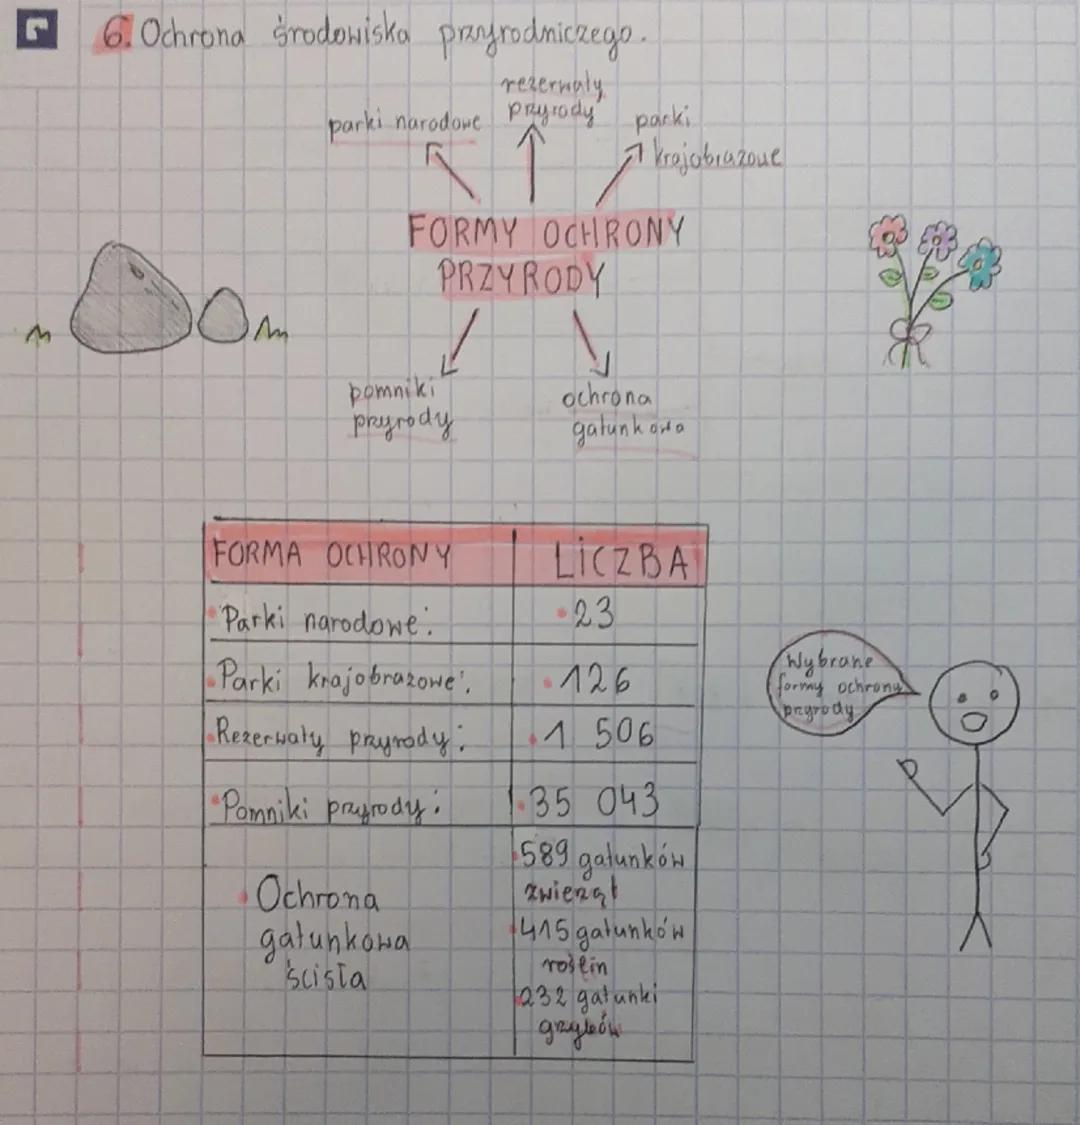 6. Ochrona środowiska przyrodniczego.
rezerwaty
przyrody
parki narodowe
parki
krajobrazowe
FORMY OCHRONY
PRZYRODY
pomniki
przyrody
ochrona
gatunkowa
FORMA OCHRONY LICZBA
Parki narodowe: 23
Parki krajobrazowe: 126
Rezerwaty przyrody: 1 506
Pomniki przyrody: 35 043
Ochrona
gatunkowa
ścisła
589 gatunków
zwierząt
415 gatunków
roślin
232 gatunki
grzybów
Wybrane
formy ochrony
przyrody